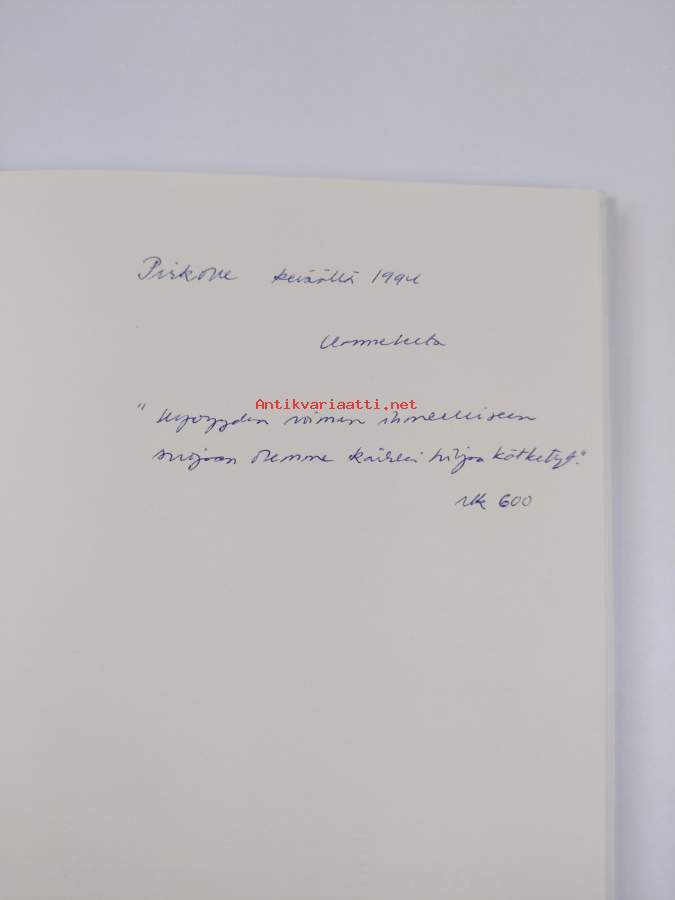 Pirkolle keväällä 1994
Antikvariaatti.net
"Hyvyyden voiman ihmeelliseen
suojaan olemme kaikki hiljaa kätketyt."
vk 600